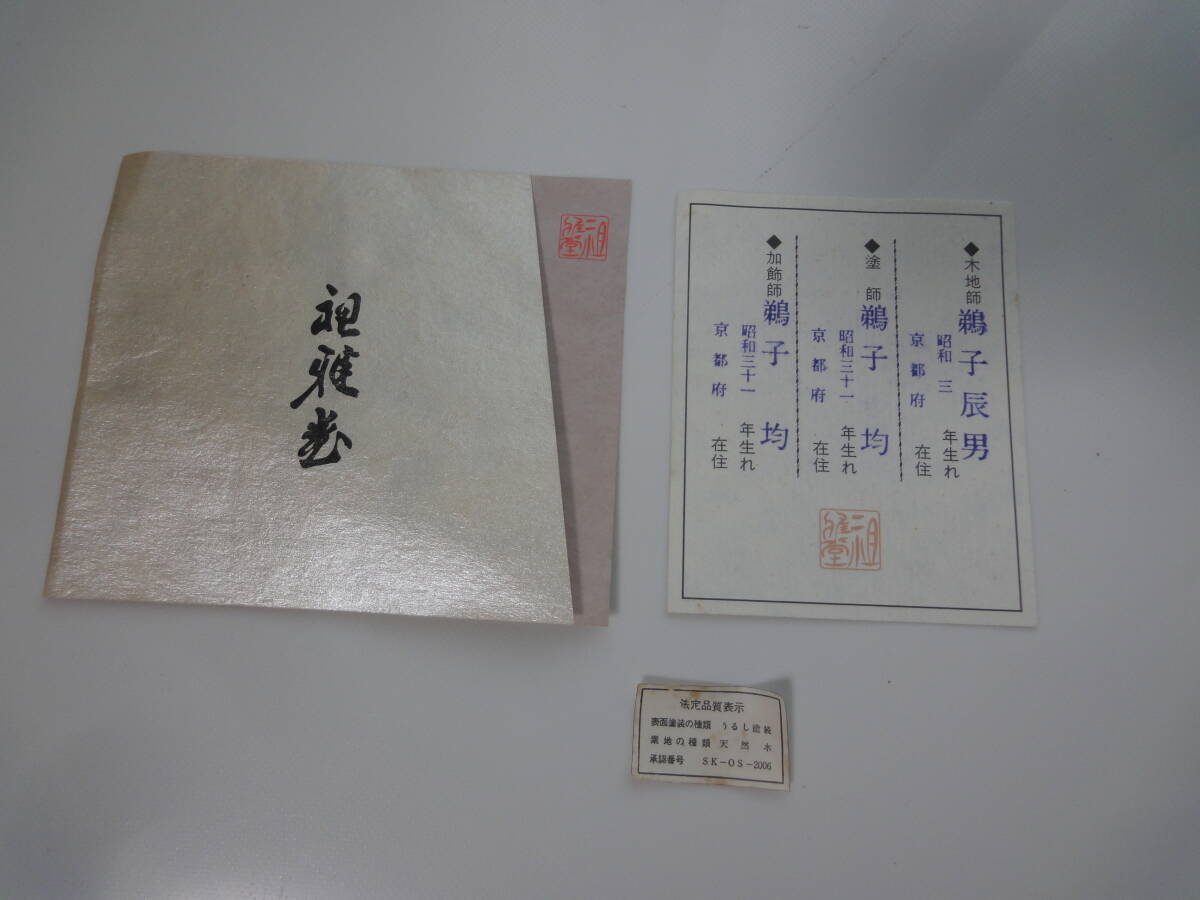 祖雅堂
◆木地師 鵜子辰男
昭和 三 年生れ
京都府 在住
◆塗師 鵜子 均
昭和三十一 年生れ
京都府 在住
◆加飾師 鵜子 均
昭和三十一 年生れ
京都府 在住
法定品質表示
表面塗装の種類 うるし塗装
素地の種類 天然木
承認番号 SK-OS-2006